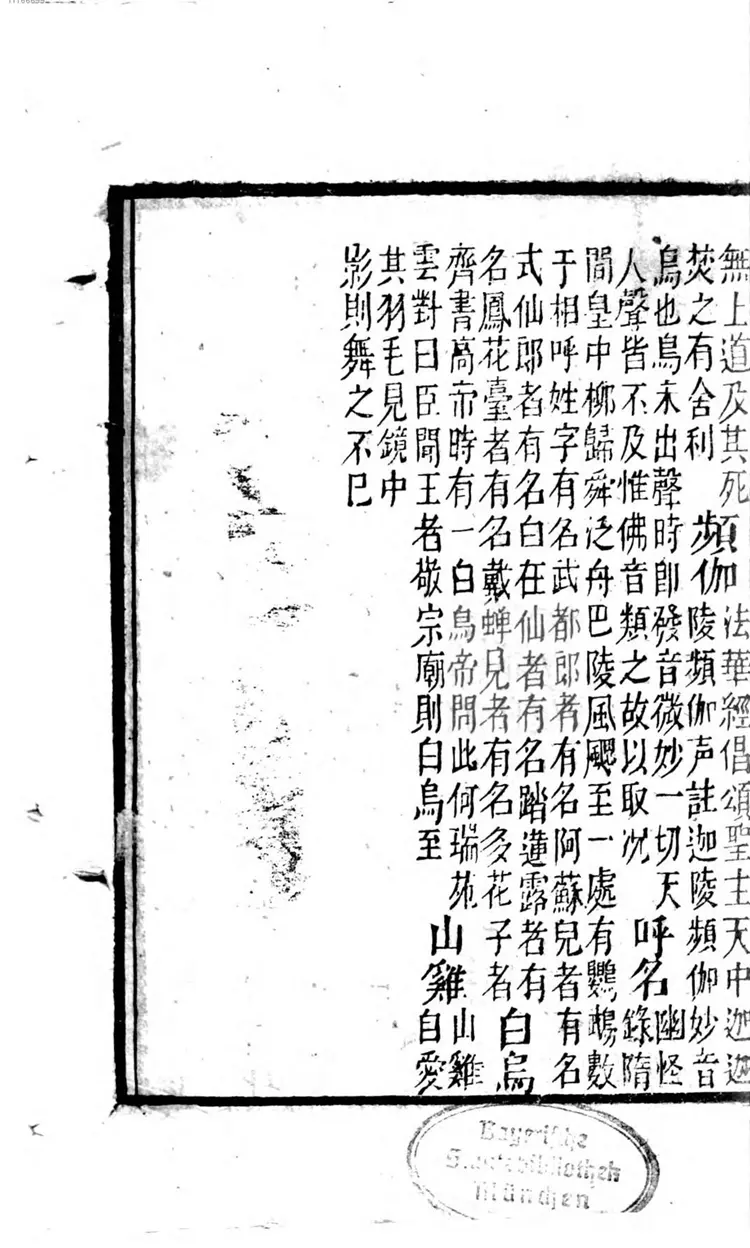 無上道及其死
焚之有舍利
頻伽
法華經倡頌聖主天中迦迦
陵頻伽声註迦陵頻伽妙音
鳥也鳥未出聲時即發音微妙一切天
人聲皆不及惟佛音類之故以取况
呼名
幽怪
錄隋
開皇中柳歸舜泛舟巴陵風颸至一處有鸚鵡數
于相呼姓字有名武都郎者有名阿蘇兒者有名
式仙郎者有名白在仙者有名踏蓮露者有
名鳳花臺者有名戴蟬兒者有名多花子者
白烏
齊書高帝時有一白烏帝問此何瑞苑
雲對曰臣聞王者敬宗廟則白烏至
山雞
山雞
自愛
其羽毛見鏡中
影則舞之不已
Bayerische
Staatsbibliothek
München